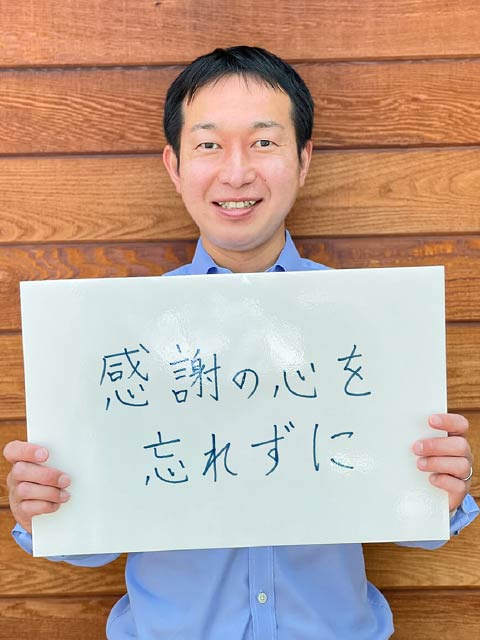 感謝の心を
忘れずに